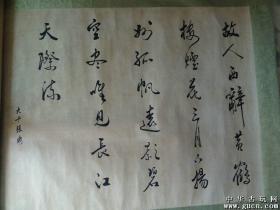 故人西辞黄鹤
楼烟花三月下揚
州孤帆遠影碧
空尽唯见長江
天際流
大千張爰
中华古玩网
www.gucn.com